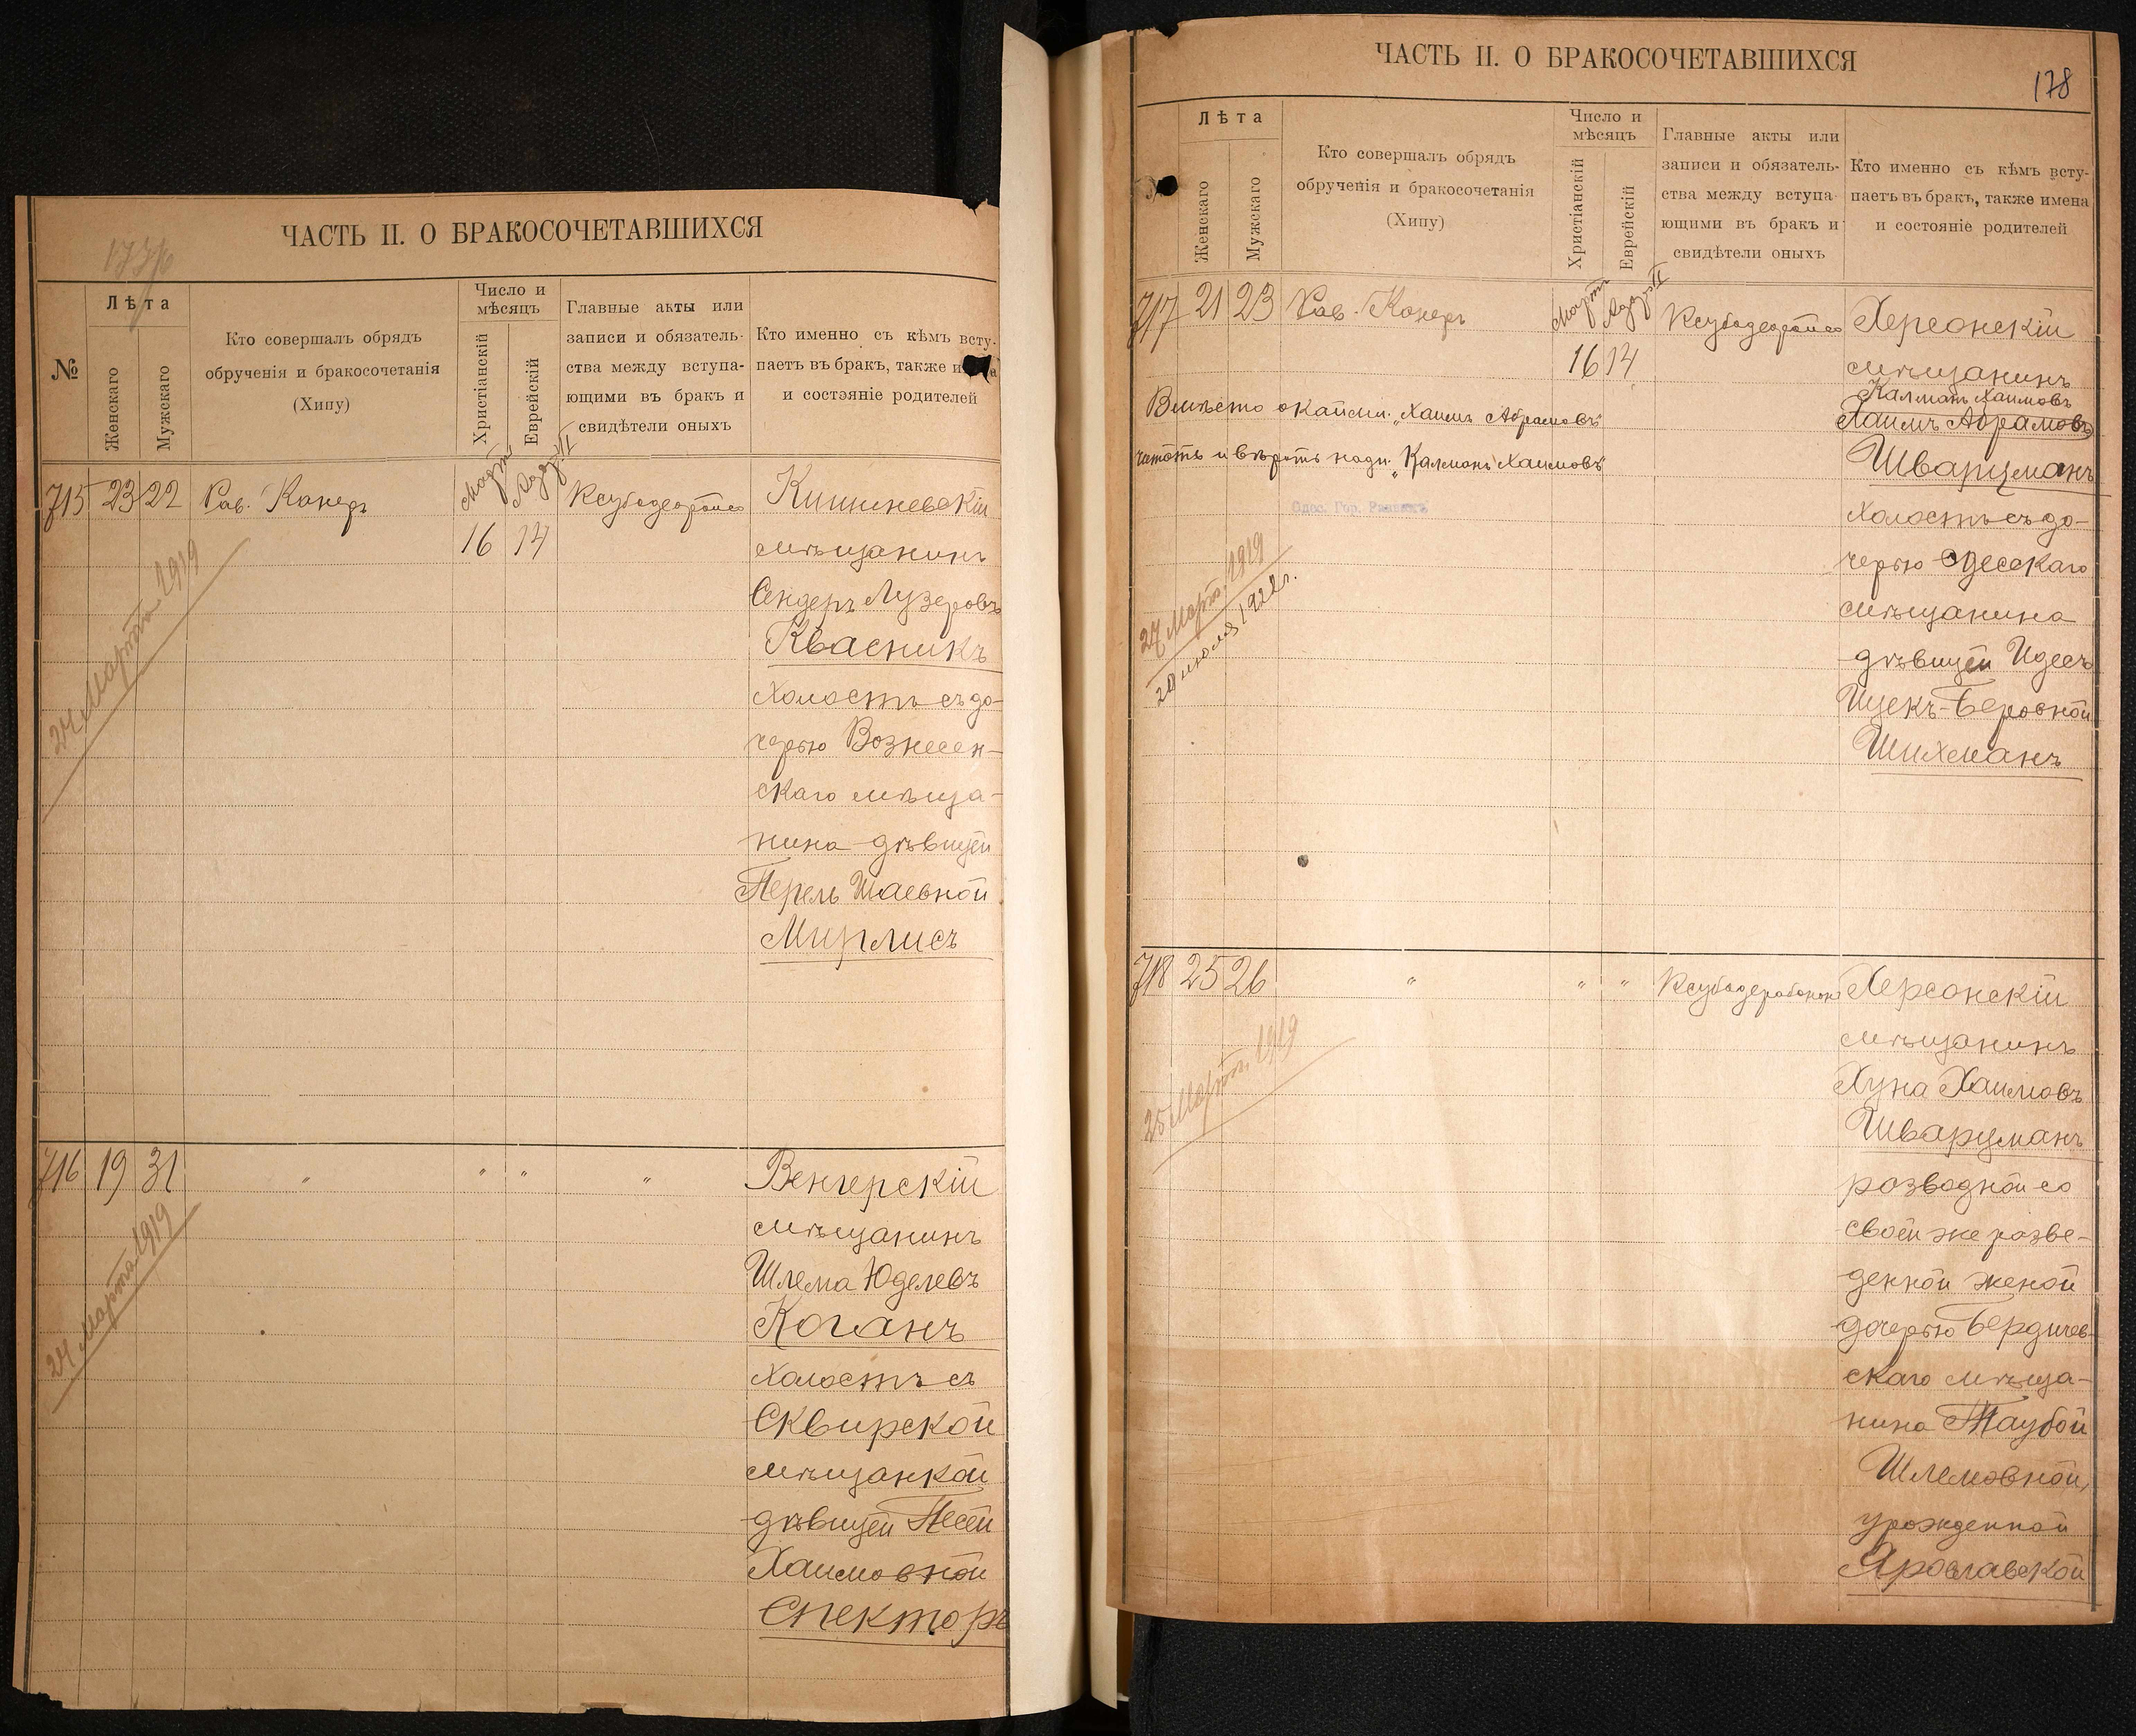 ЧАСТЬ II. О БРАКОСОЧЕТАВШИХСЯ
№
Лѣта
Женскаго
Мужскаго
Кто совершалъ обрядъ
обрученія и бракосочетанія
(Хипу)
Число и
мѣсяцъ
Христіанскій
Еврейскій
Главные акты или
записи и обязатель-
ства между вступа-
ющими въ бракъ и
свидѣтели оныхъ
Кто именно съ кѣмъ всту-
паетъ въ бракъ, также
и состояніе родителей
715 23 22 Рав. Канеръ
Мартъ Адаръ II
16 14
Кишиневскій
мѣщанинъ
Сендеръ Лузеровъ
Квасникъ
холостъ съ до-
черью Вознесен-
скаго мѣща-
нина дѣвицей
Перель Шаевной
Мирлисъ
24 Марта 1919
716 19 31 " " " "
Венгерскій
мѣщанинъ
Шлема Юделевъ
Коганъ
холостъ съ
Сквирской
мѣщанкой
дѣвицей Песей
Хаимовной
Спекторъ
24 Марта 1919
ЧАСТЬ II. О БРАКОСОЧЕТАВШИХСЯ
178
Лѣта
Женскаго
Мужскаго
Кто совершалъ обрядъ
обрученія и бракосочетанія
(Хипу)
Число и
мѣсяцъ
Христіанскій
Еврейскій
Главные акты или
записи и обязатель-
ства между вступа-
ющими въ бракъ и
свидѣтели оныхъ
Кто именно съ кѣмъ всту-
паетъ въ бракъ, также имена
и состояніе родителей
717 21 23 Рав. Канеръ
Мартъ Адаръ II
16 14
Херсонскій
мѣщанинъ
Калманъ Хаимовъ
Хаимъ Абрамовъ
Шварцманъ
холостъ съ до-
черью Одесскаго
мѣщанина
дѣвицей Идесъ
Ицекъ-Беровной
Шихманъ
Вмѣсто окаймл. "Хаимъ Абрамовъ"
читать и вѣрить надп. "Калманъ Хаимовъ"
Одес. Гор. Раввинъ
27 Марта 1919
20 июля 1922 г.
718 25 26 " " "
Херсонскій
мѣщанинъ
Хуна Хаимовъ
Шварцманъ
розводной со
своей же розве-
денной женой
дочерью Бердичев-
скаго мѣща-
нина Таубой
Шлемовной,
урожденной
Ярославской
25 Марта 1919